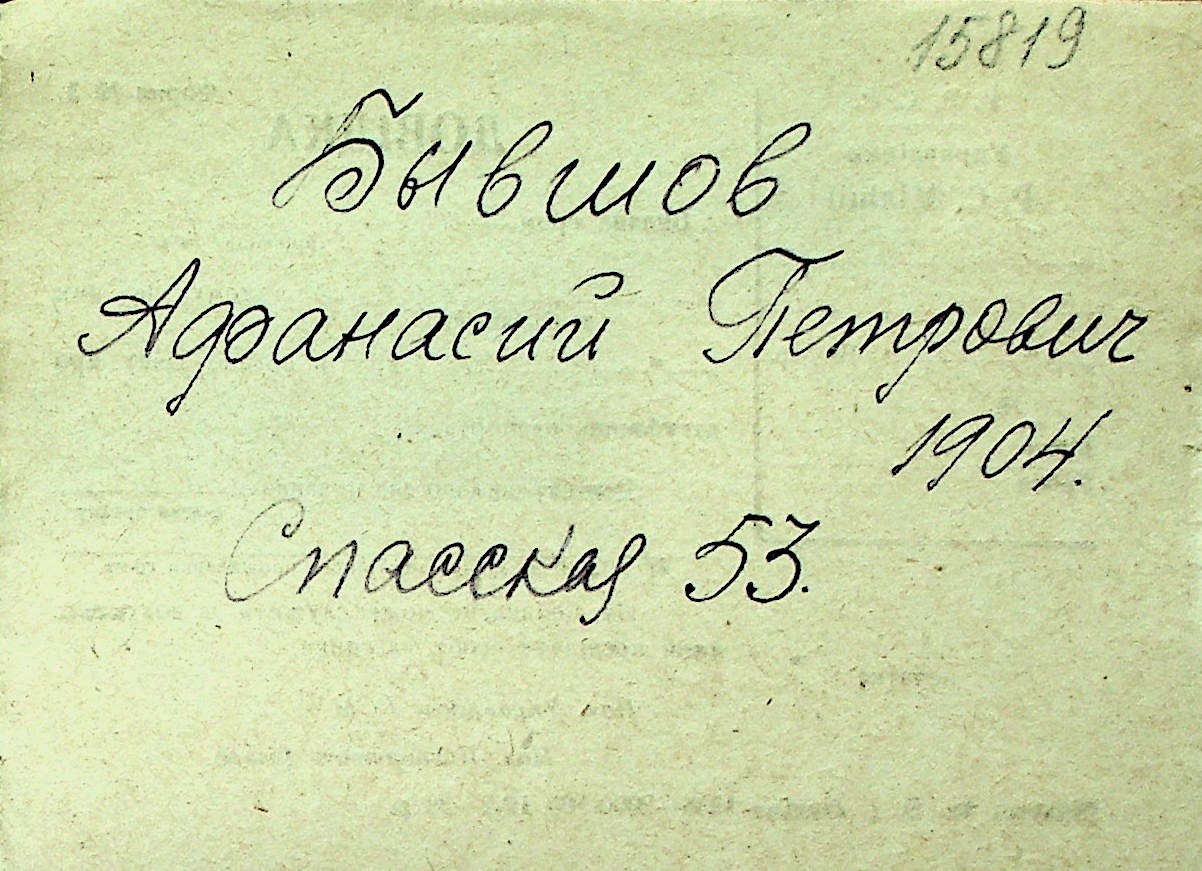 15819
Бывшов
Афанасий Петрович
1904.
Спасская 53.